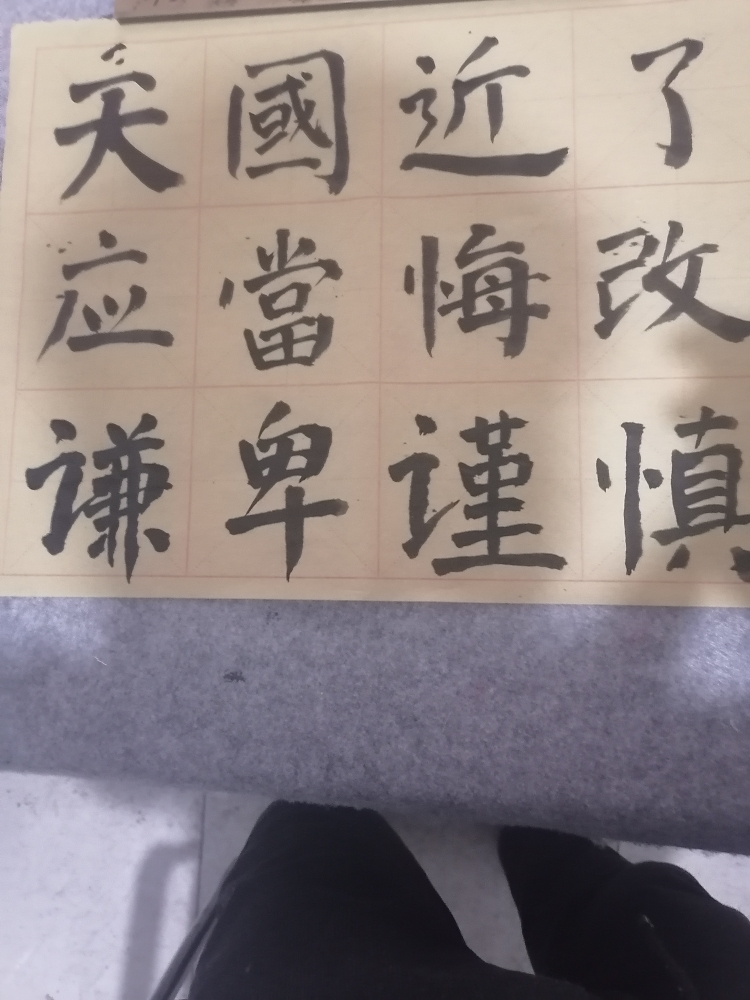 天國近了
应當悔改
谦卑谨慎